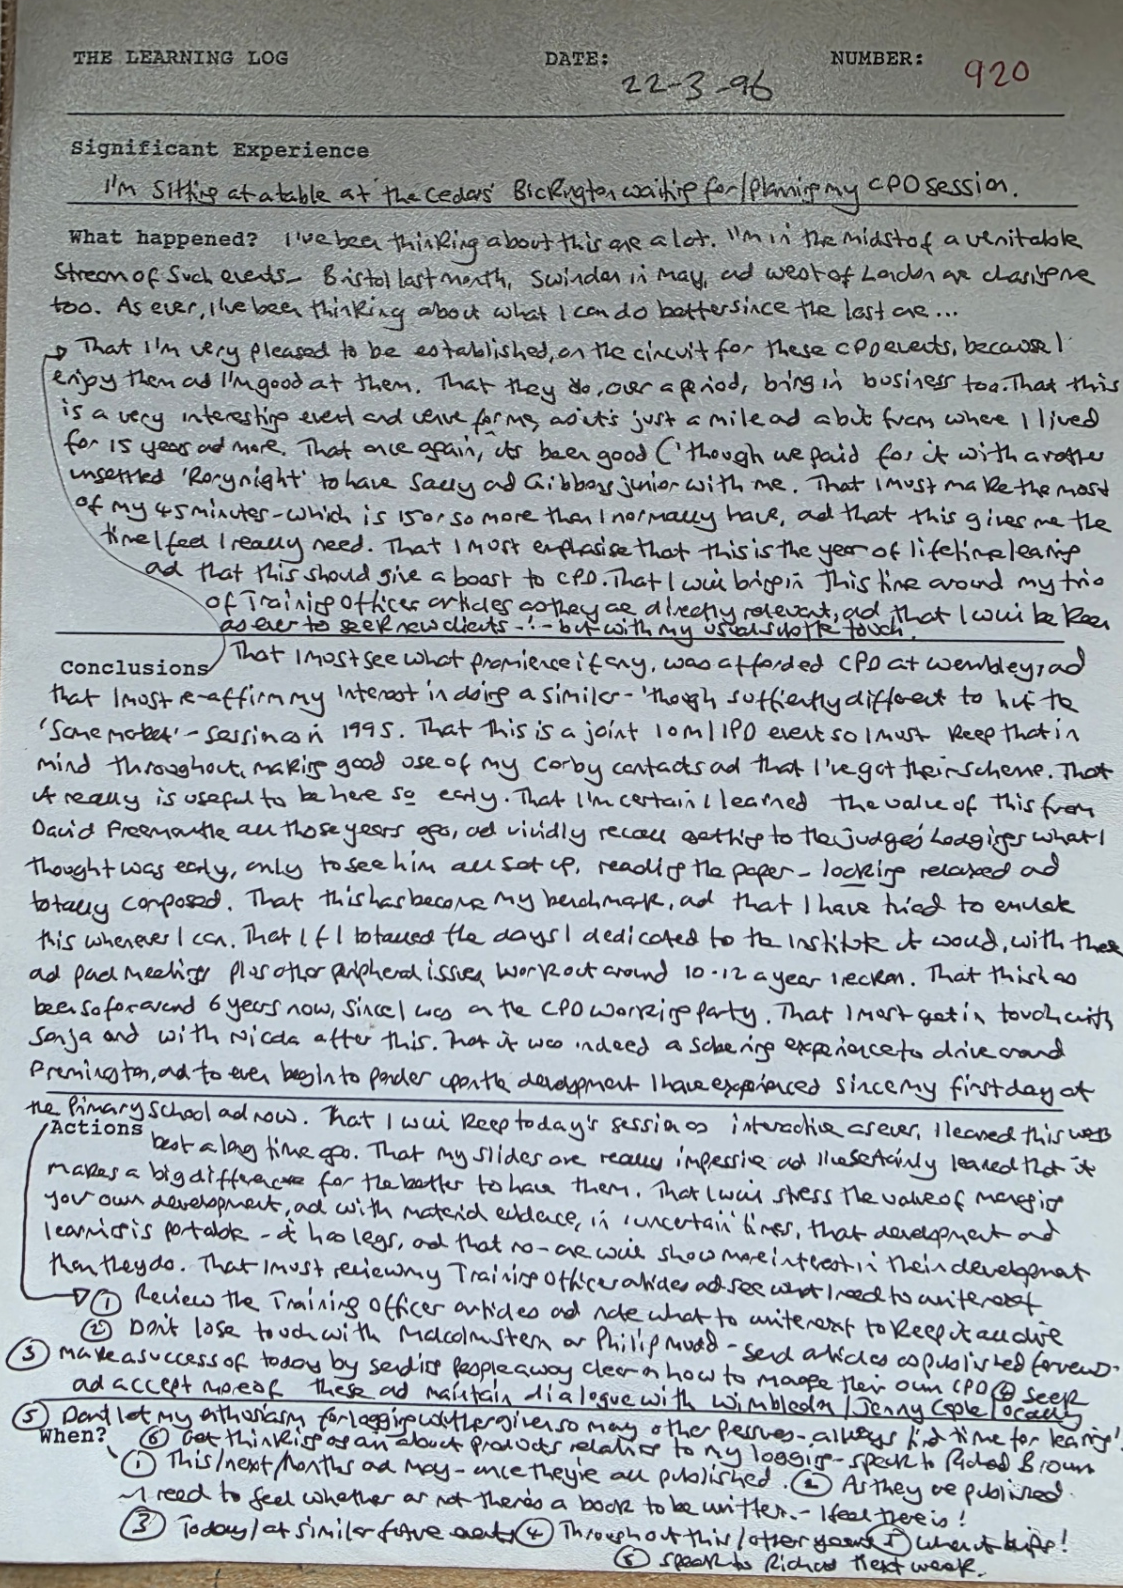 THE LEARNING LOG DATE: 22-3-96 NUMBER: 920
Significant Experience
I'm sitting at a table at 'the Cedars' Bickington waiting for/planning my CPD session.
What happened? I've been thinking about this one a lot. I'm in the midst of a veritable
stream of such events - Bristol last month, Swindon in May, and west of London are chasing me
too. As ever, I've been thinking about what I can do better since the last one...
That I'm very pleased to be established, on the circuit for these CPD events, because I
enjoy them and I'm good at them. That they do, over a period, bring in business too. That this
is a very interesting event and venue for me, as it's just a mile and a bit from where I lived
for 15 years and more. That once again, it's been good ('though we paid for it with another
unsettled 'Rory night' to have Sally and Gibbons junior with me. That I must make the most
of my 45 minutes - which is 15 or so more than I normally have, and that this gives me the
time I feel I really need. That I must emphasise that this is the year of lifetime learning
and that this should give a boost to CPD. That I will bring in this line around my trio
of Training Officer articles as they are directly relevant, and that I will be keen
as ever to seek new clients -!- but with my usual subtle touch.
Conclusions That I must see what prominence if any, was afforded CPD at Wembley, and
that I must re-affirm my interest in doing a similar - 'though sufficiently different to hit the
'same market' - session in 1995. That this is a joint IOM/IPD event so I must keep that in
mind throughout, making good use of my Corby contacts and that I've got their scheme. That
it really is useful to be here so early. That I'm certain I learned the value of this from
David Freemantle all those years ago, and vividly recall getting to the Judges' Lodgings what I
thought was early, only to see him all set up, reading the paper - looking relaxed and
totally composed. That this has become my benchmark, and that I have tried to emulate
this whenever I can. That if I totalled the days I dedicated to the Institute it would, with these
and paid meetings plus other peripheral issues, work out around 10-12 a year I reckon. That this has
been so for around 6 years now, since I was on the CPD working party. That I must get in touch with
Sonja and with Nicola after this. That it was indeed a sobering experience to drive around
Premington, and to even begin to ponder upon the development I have experienced since my first day at
the Primary School and now. That I will keep today's session as interactive as ever, I learned this was
Actions best a long time ago. That my slides are really impressive and I've certainly learned that it
makes a big difference for the better to have them. That I will stress the value of managing
your own development, and with material evidence, in 'uncertain' times, that development and
learning is portable - it has legs, and that no-one will show more interest in their development
than they do. That I must review my Training Officer articles and see what I need to write next
① Review the Training Officer articles and note what to write next to keep it all alive
② Don't lose touch with Malcolm Stern or Philip Mudd - send articles as published for views.
③ Make a success of today by sending people away clear on how to manage their own CPD ④ Seek
and accept more of these and maintain dialogue with Wimbledon/Jenny locally
⑤ Don't let my enthusiasm for logging wither given so many other pressures - always find time for learning!
When? ⑥ Get thinking again about products relating to my logging - speak to Richard Brown
① This/next/months and May - once they're all published. ② As they are published
- I need to feel whether or not there's a book to be written. - I feel there is!
③ Today/at similar future events ④ Throughout this/other years ⑤ When it
⑥ Speak to Richard next week.